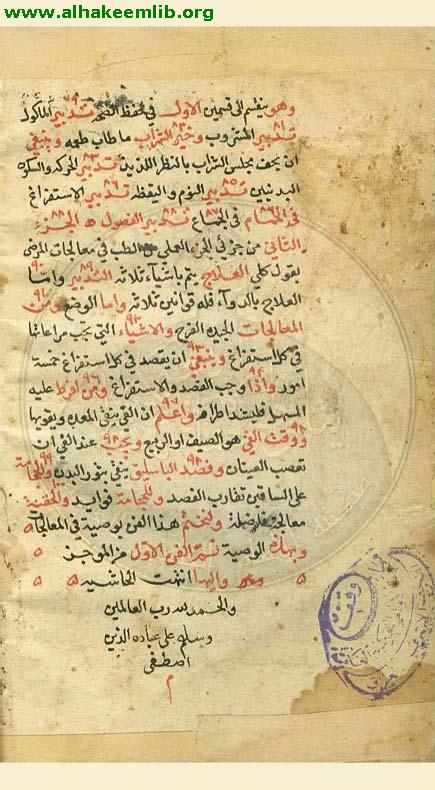 www.alhakeemlib.org
وهو ينقسم الى قسمين الاول في حفظ الصحة تدبير الماكول
تدبير المشروب وخير الشراب ما طاب طعمه وينبغي
ان يحف مجلس الشراب بالنظر اللذيذ تدبير الحركة والسكون
البدنيين تدبير النوم واليقظة تدبير الاستفراغ
في الحمام في الجماع تدبير الفصول الجزء
الثاني من جزئي الجزء العملي من الطب في معالجات المرض
بقول كلي العلاج يتم باشياء ثلاثة التدبير واما
العلاج بالدواء فله قوانين ثلاثة واما الوضع ومن
المعالجات الجيدة الفرح والاشياء التي تجب مراعاتها
في كل استفراغ وينبغي ان يقصد في كل استفراغ خمسة
امور واذا وجب الفصد والاستفراغ ومن افرط عليه
المسهل فليشد اطرافه واعلم ان القي ينقي المعدة ويقويها
ووقت القي هو الصيف او الربيع ويجب عند القي ان
تعصب العينان وفصد الباسليق ينقي تنور البدن والحجامة
على الساقين تقارب الفصد وللحجامة فوايد والحقنة
معالجة فاضلة ولنختم هذا الفن بوصية في المعالجات
وبهذه الوصية تم الفن الاول من الموجز
واليها انتهت الحاشية
والحمد لله رب العالمين
وسلم على عباده الذين
اصطفى
م
وقف